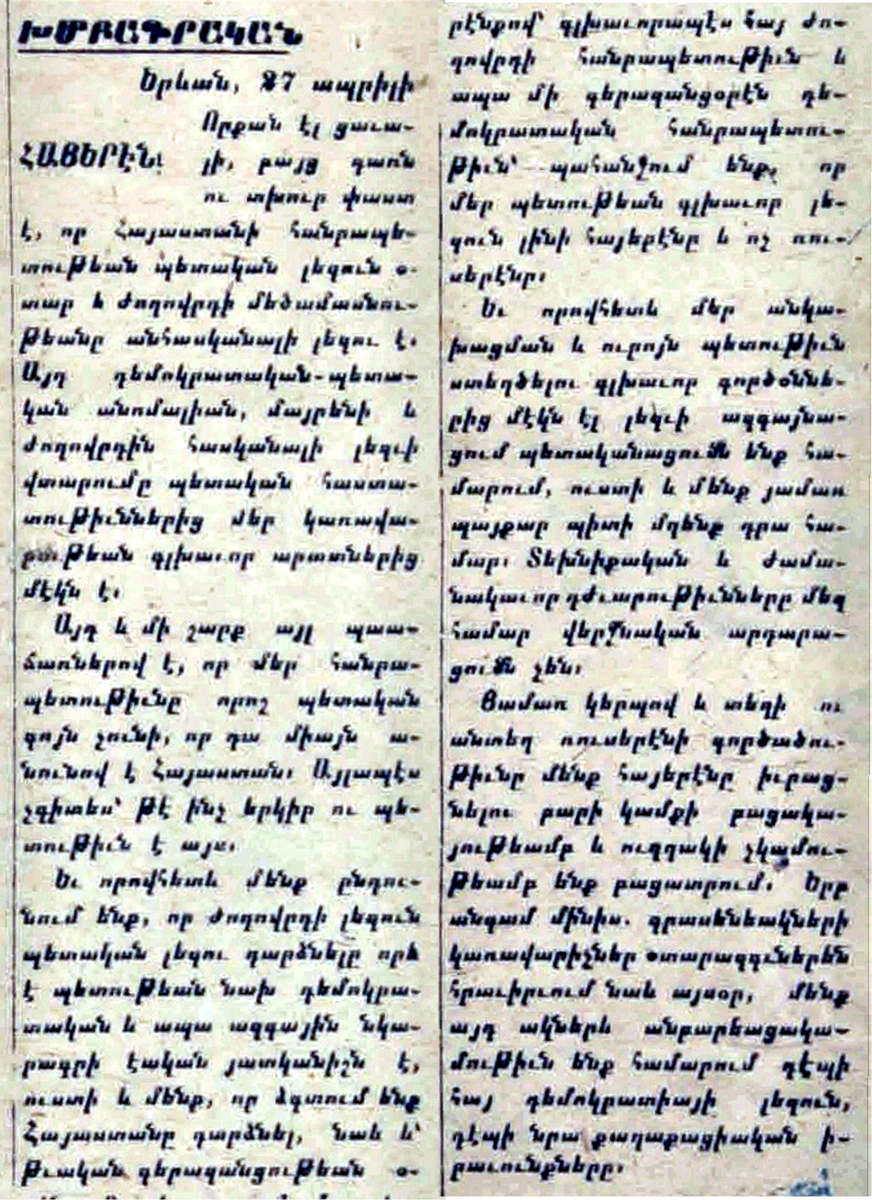 ԽՄԲԱԳՐԱԿԱՆ
Երևան, 27 ապրիլի
ՀԱՅԵՐԷՆ՝
Որքան էլ ցաւա-
լի, բայց դառն
ու տխուր փաստ
է, որ Հայաստանի հանրապե-
տութեան պետական լեզուն օ-
տար և ժողովրդի մեծամասնու-
թեանը անհասկանալի լեզու է.
Այդ դեմոկրատական-պետա-
կան անոմալիան, մայրենի և
ժողովրդին հասկանալի լեզւի
վտարումը պետական հաստա-
տութիւններից մեր կառավա-
րութեան գլխաւոր արատներից
մէկն է.
Այդ և մի շարք այլ պատ-
ճառներով է, որ մեր հանրա-
պետութիւնը որոշ պետական
գոյն չունի, որ դա միայն ա-
նունով է Հայաստան. Այլապէս
չգիտես՝ թէ ինչ երկիր ու պե-
տութիւն է այս.
Եւ որովհետև մենք ընդու-
նում ենք, որ ժողովրդի լեզուն
պետական լեզու դարձնելը որևէ
է պետութեան նախ դեմոկրա-
տական և ապա ազգային նկա-
րագրի էական յատկանիշն է,
ուստի և մենք, որ ձգտում ենք
Հայաստանը դարձնել, նաև և՝
թւական գերազանցութեան օ-
րէնքով՝ գլխաւորապէս հայ ժո-
ղովրդի հանրապետութիւն և
ապա մի գերազանցօրէն դե-
մոկրատական հանրապետու-
թիւն՝ պահանջում ենք, որ
մեր պետութեան գլխաւոր լե-
զուն լինի հայերէնը և ոչ ռու-
սերէնը.
Եւ որովհետև մեր անկա-
խացման և ուրոյն պետութիւն
ստեղծելու գլխաւոր գործօննե-
րից մէկն էլ լեզւի ազգայնա-
ցում պետականացումն ենք հա-
մարում, ուստի և մենք յամառ
պայքար պիտի մղենք դրա հա-
մար. Տեխնիքական և ժամա-
նակաւոր դժւարութիւնները մեզ
համար վերջնական արդարա-
ցումն չեն.
Յամառ կերպով և տեղի ու
անտեղ ռուսերէնի գործածու-
թիւնը մենք հայերէնը իւրաց-
նելու բարի կամքի բացակա-
յութեամբ և ուղղակի չկամու-
թեամբ ենք բացատրում. Երբ
անգամ մինիս. գրասենեակների
կառավարիչներ օտարազգւներեն
հրաւիրւում նաև այսօր, մենք
այդ ակներև անբարեացակա-
մութիւն ենք համարում դէպի
հայ դեմոկրատիայի լեզուն,
դէպի նրա քաղաքացիական ի-
րաւունքները.